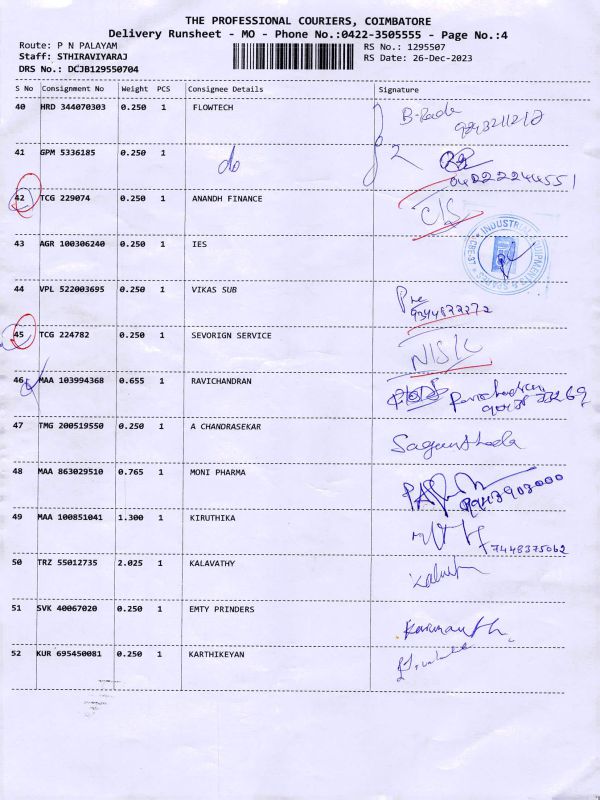 THE PROFESSIONAL COURIERS, COIMBATORE
Delivery Runsheet - MO - Phone No.:0422-3505555 - Page No.:4
Route: P N PALAYAM
RS No.: 1295507
Staff: STHIRAVIYARAJ
RS Date: 26-Dec-2023
DRS No.: DCJB129550704
S No Consignment No Weight PCS Consignee Details Signature
40 HRD 344070303 0.250 1 FLOWTECH
41 GPM 5336185 0.250 1 do 2
04222244551
42 TCG 229074 0.250 1 ANANDH FINANCE
43 AGR 100306240 0.250 1 IES
INDUSTRIAL
44 VPL 522003695 0.250 1 VIKAS SUB
45 TCG 224782 0.250 1 SEVORIGN SERVICE
46 MAA 103994368 0.655 1 RAVICHANDRAN
47 TMG 200519550 0.250 1 A CHANDRASEKAR
48 MAA 863029510 0.765 1 MONI PHARMA
49 MAA 100851041 1.300 1 KIRUTHIKA
7448375062
50 TRZ 55012735 2.025 1 KALAVATHY
51 SVK 40067020 0.250 1 EMTY PRINDERS
52 KUR 695450081 0.250 1 KARTHIKEYAN